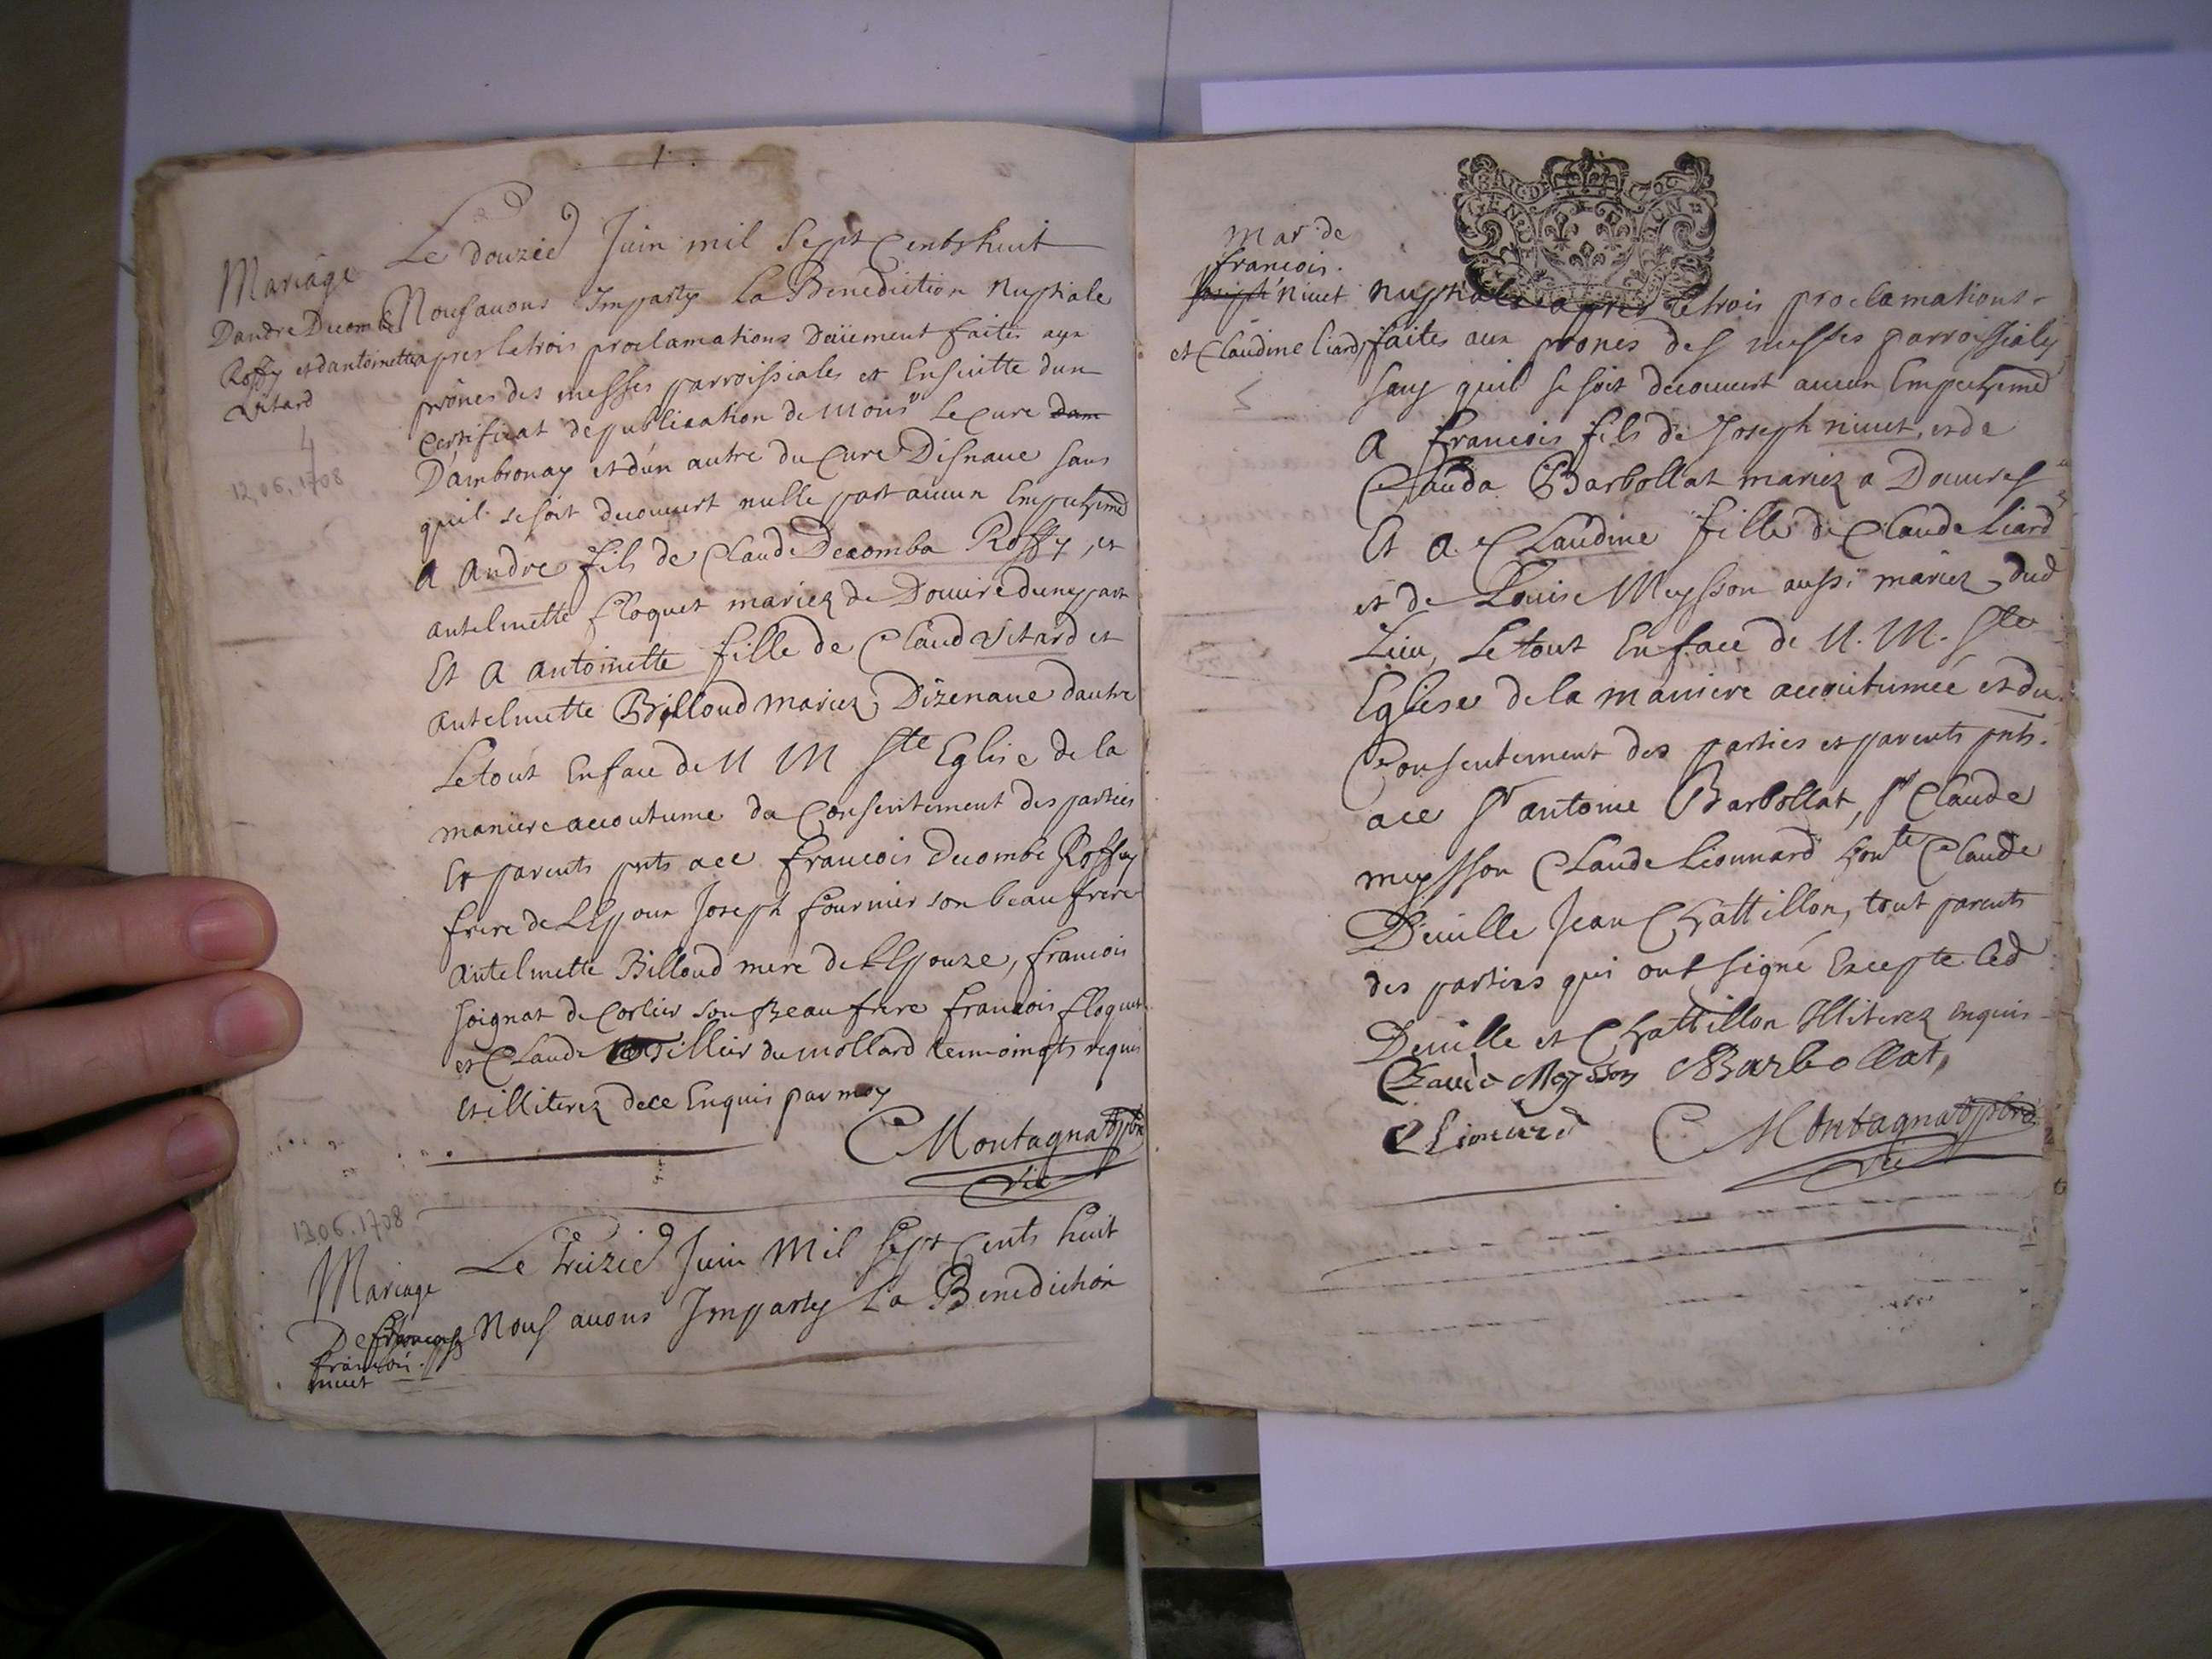 Mariage
Dandre Decombe
Roffy et dantoinette
Vitard
4
12.06.1708
Le douzie Juin mil Sept Cents huit
Nous auons Imparty La Benediction Nuptiale
apres le trois proclamations Düement faites aux
prônes des messes parroissiales et Ensuitte dun
Certificat de publication de Monsr Le Cure
Dambronay et dun autre du Cure Disnaue sans
quil se soit decouuert nulle part aucun Empechmt
A Andre fils de Claude Decomba Roffy, et
antelmette floquet mariez de Douure dune part
Et A antoinette fille de Claud Vitard et
antelmette Billoud mariez Dizenaue dautre
Le tout En face de N M Ste Eglise de la
maniere accoutume du Consentement des parties
Et parents pnts aec francois Decombe Roffy
frere de LEpoux Joseph fournier son beau frere
Antelmette Billoud mere de lEpouze, francois
Soignat de Corlier son Beau frere francois floquet
et Claude Tillier du mollard temoingts requis
et illiterez de ce Enquis par moy
C Montagnat ptre
vic
13.06.1708
Mariage
De
francois
niuet
Le treizie Juin Mil Sept Cents huit
Nous auons Imparty La Benediction
GEN
Mar de
francois
Joseph Niuet
et Claudine liard
Nuptiale apres le trois proclamations
faites aux prones des messes parroissiales
sans quil se soit decouuert aucun Empechmt
A francois fils de Joseph niuet, et de
Clauda Barbollat mariez a Douures
Et A Claudine fille de Claude liard
et de Louise Meysson aussi mariez dud
Lieu, Le tout En face de N. M. Ste
Eglise de la maniere accoutumée et du
Consentement des parties et parents pnts.
aec Sr antoine Barbollat, Sr Claude
meysson Claude Lionnard honte Claude
Deuille Jean Chattillon, tout parents
des parties qui ont signé Excepte led
Deuille et Chattillon Illiterez enquis
Claude Meysson Barbollat
C Lionard C Montagnat ptre
vic